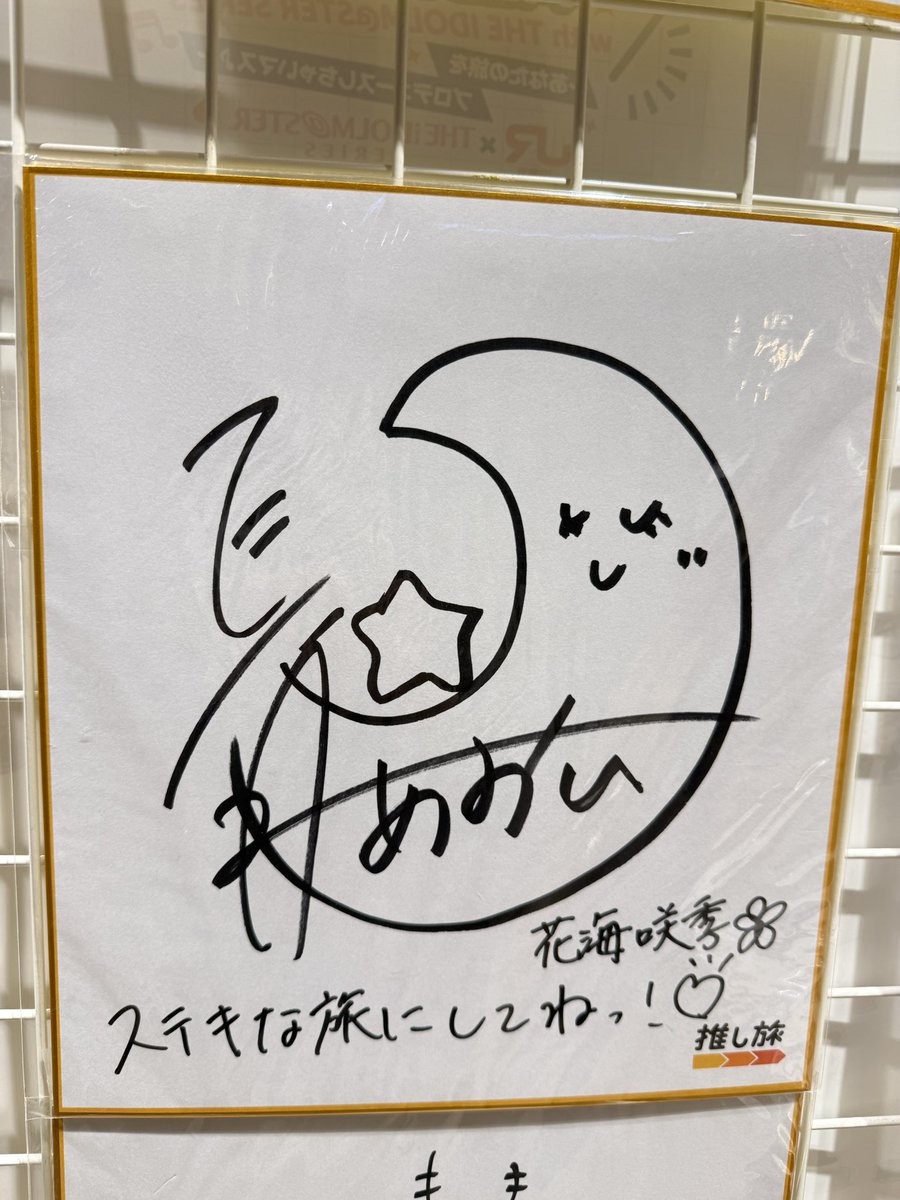 with THE IDOLM@STER SERIES
あなたの旅を
プロデュースしちゃいマス
JR×THE IDOLM@STER
SERIES
あおい
花海咲季
ステキな旅にしてねっ！
推し旅